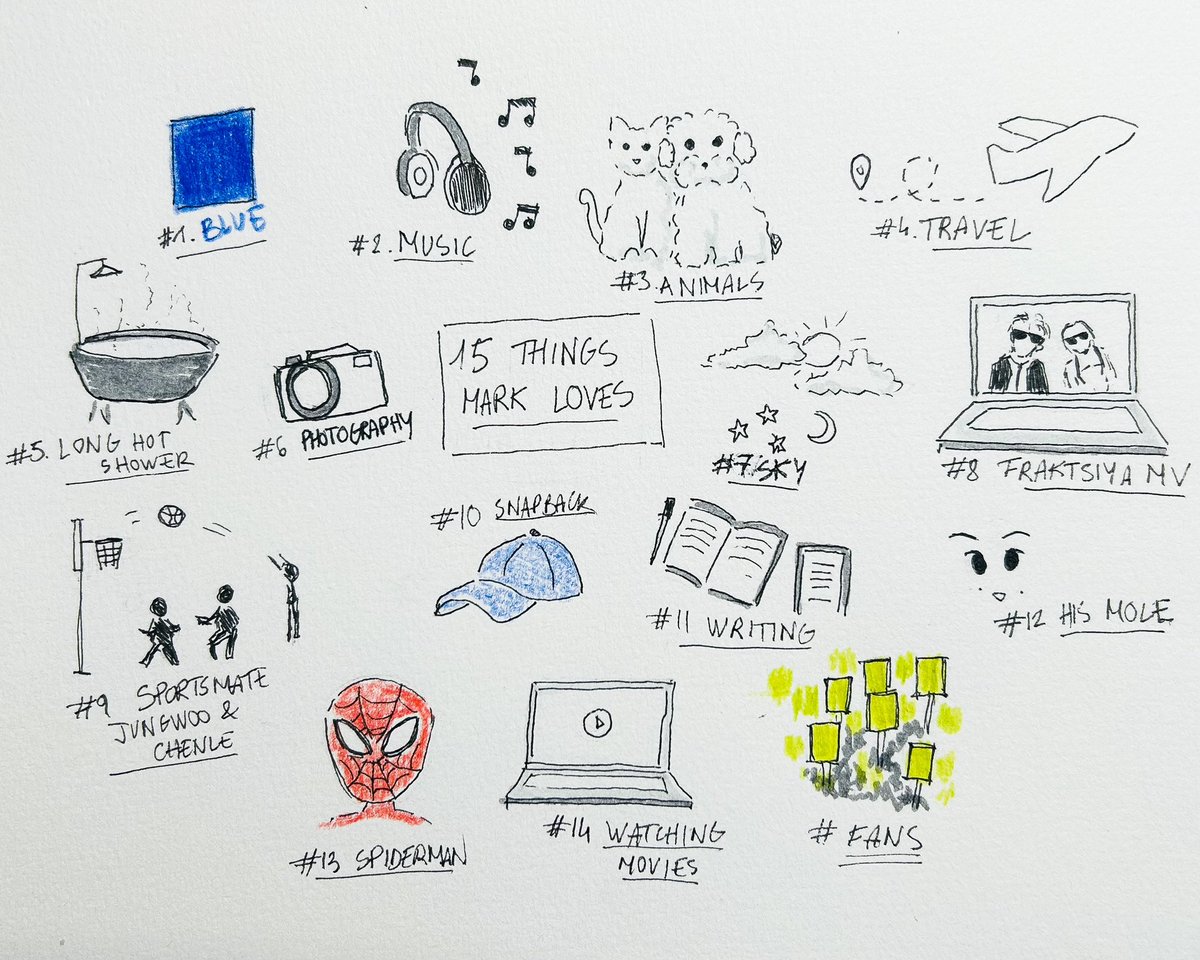 #1. BLUE
#2. MUSIC
#3. ANIMALS
#4. TRAVEL
#5. LONG HOT
SHOWER
#6 PHOTOGRAPHY
15 THINGS
MARK LOVES
#7. SKY
#8 FRAKTSIYA MV
#9 SPORTSMATE
JUNGWOO &
CHENLE
#10 SNAPBACK
#11 WRITING
#12 HIS MOLE
#13 SPIDERMAN
#14 WATCHING
MOVIES
# FANS